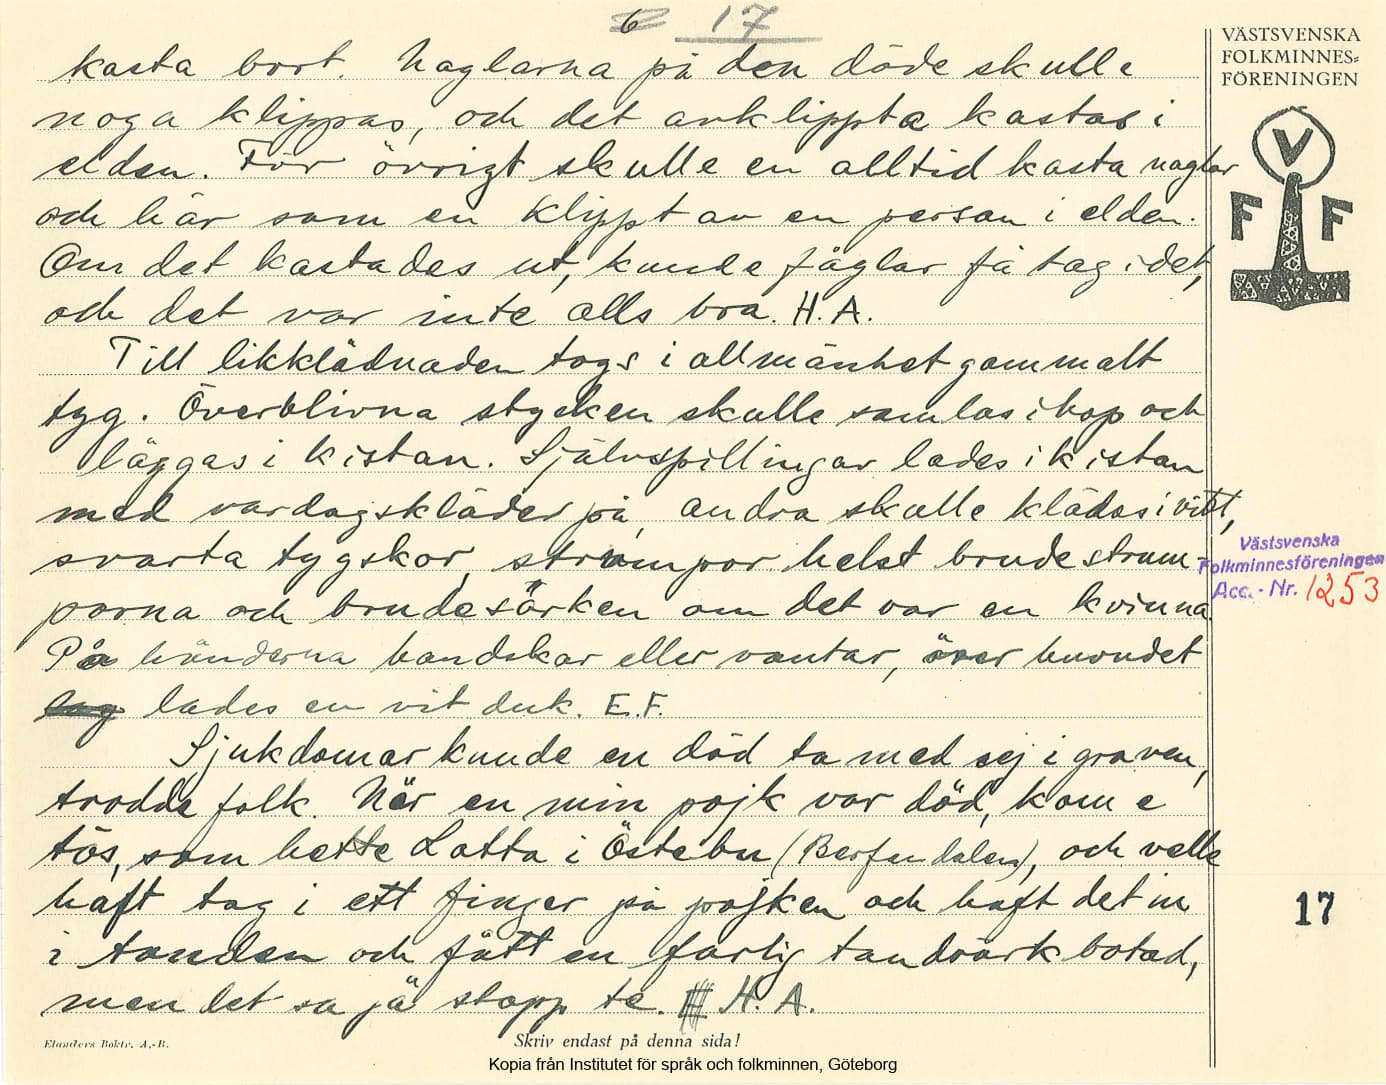 6 17
VÄSTSVENSKA
FOLKMINNES=
FÖRENINGEN
V
F F
kasta bort. Naglarna på den döde skulle
noga klippas, och det avklippta kastas i
elden. För övrigt skulle en alltid kasta naglar
och hår som en klippt av en person i elden.
Om det kastades ut, kunde fåglar få tag i det,
och det var inte alls bra. H.A.
Till likklädnaden togs i allmänhet gammalt
tyg. Överblivna stycken skulle samlas ihop och
läggas i kistan. Självspillingar lades i kistan
med vardagskläder på, andra skulle klädas i vitt,
svarta tygskor, strumpor helst brudestrum-
porna och brudesärken om det var en kvinna.
På händerna handskar eller vantar, över huvudet
lades en vit duk. E.F.
Sjukdomar kunde en död ta med sej i graven,
trodde folk. När en min pojk var död, kom e
tös, som hette Lotta i Östebu (Berfendalen), och velle
haft tag i ett finger på pojken och haft det in
i tanden och fått en farlig tandvärk botad,
men det sa ja stopp te. H.A.
Västsvenska
Folkminnesföreningen
Acc. - Nr. 1253
17
Elanders Boktr. A.-B.
Skriv endast på denna sida!
Kopia från Institutet för språk och folkminnen, Göteborg